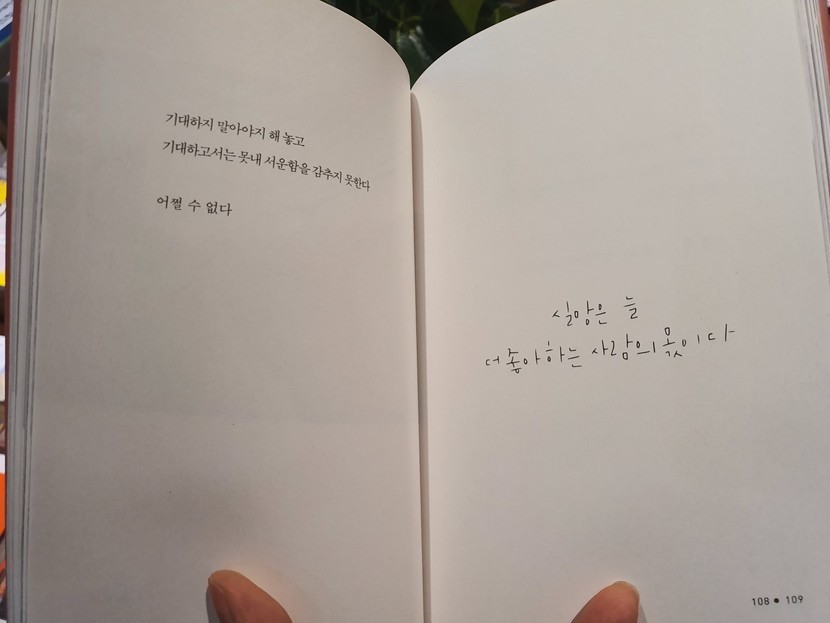 기대하지 말아야지 해 놓고
기대하고서는 못내 서운함을 감추지 못한다
어쩔 수 없다
실망은 늘
더 좋아하는 사람의 몫이다
108 ● 109